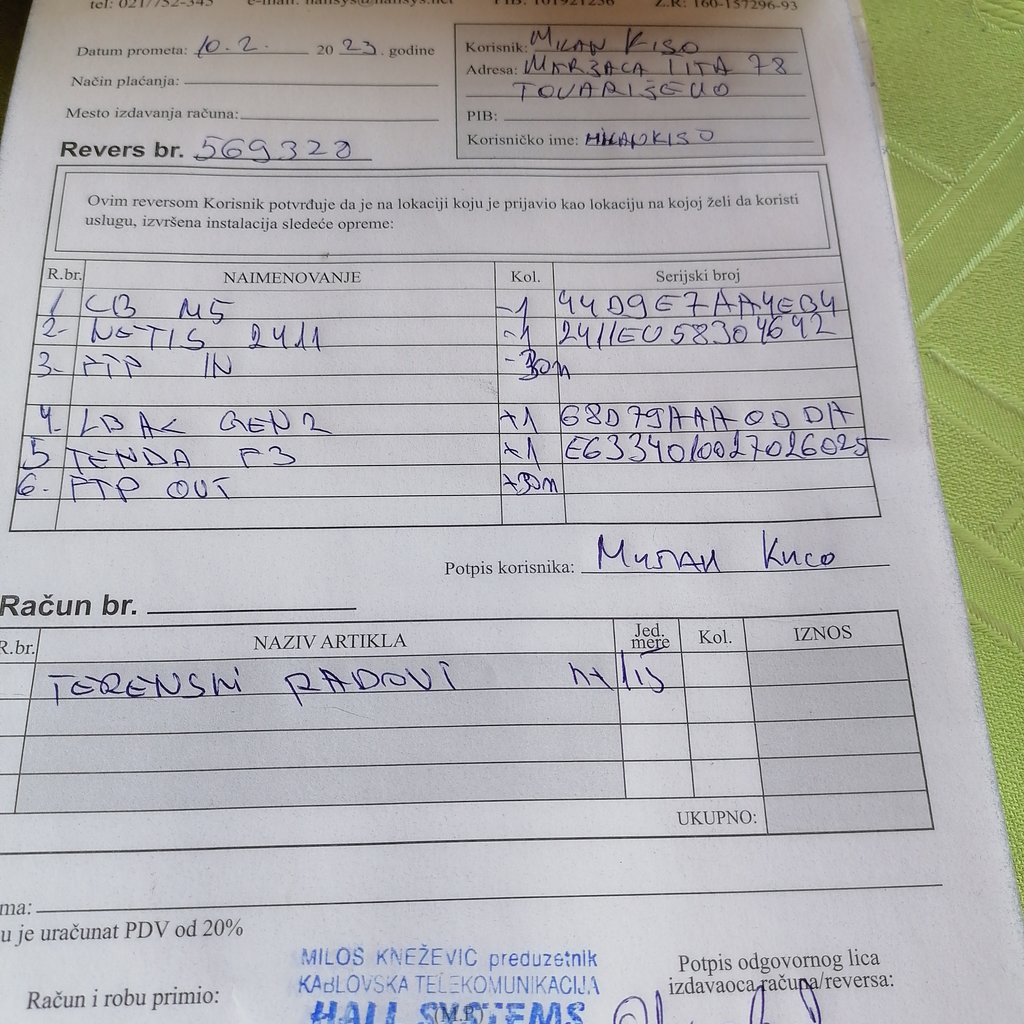 tel: 021/752-345 e-mail: hallsys@hallsys.net PIB: 101921236 Z.R: 160-157296-93
Datum prometa: 10.2. 2023. godine
Način plaćanja:
Mesto izdavanja računa:
Korisnik: MILAN KISO
Adresa: MARŠALA TITA 78
TOVARIŠEVO
PIB:
Korisničko ime: MILANKISO
Revers br. 569320
Ovim reversom Korisnik potvrđuje da je na lokaciji koju je prijavio kao lokaciju na kojoj želi da koristi
uslugu, izvršena instalacija sledeće opreme:
R.br. NAIMENOVANJE Kol. Serijski broj
1 M5 -1 44D9E7AA4EB4
2- NETIS 2411 -1 2411EU58304642
3- FTP IN -30m
4- GEN2 +1 68D79AAA0DDA
5 TENDA F3 +1 E6334010027026025
6- FTP OUT +30m
Potpis korisnika: Милан Кисо
Račun br.
R.br. NAZIV ARTIKLA Jed. mere Kol. IZNOS
TERENSKI RADOVI
UKUPNO:
ma:
u je uračunat PDV od 20%
MILOŠ KNEŽEVIĆ preduzetnik
KABLOVSKA TELEKOMUNIKACIJA
HALL SYSTEMS
(M.P.)
Račun i robu primio:
Potpis odgovornog lica
izdavaoca računa/reversa: